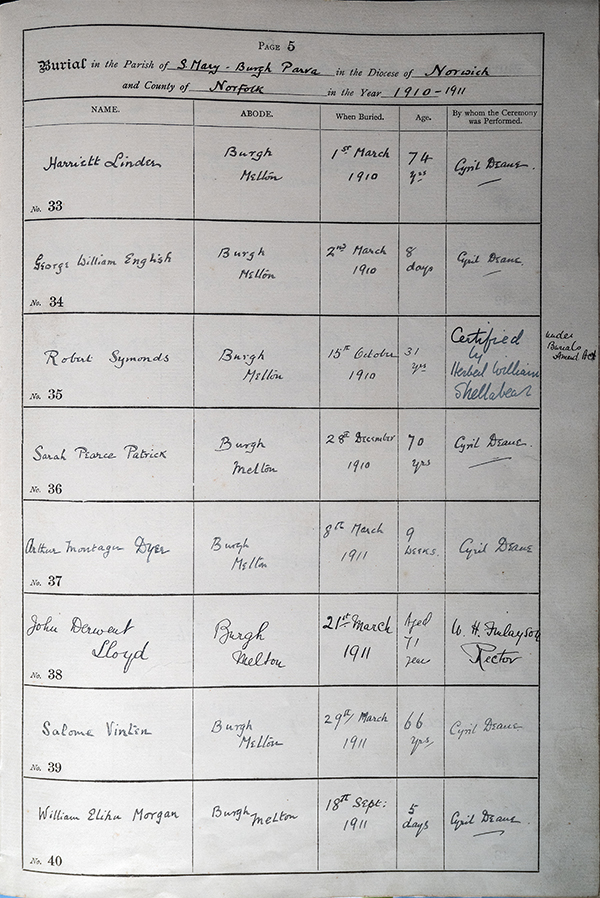 PAGE 5
Burial in the Parish of S. Mary - Burgh Parva in the Diocese of Norwich
and County of Norfolk in the Year 1910-1911
NAME. ABODE. When Buried. Age. By whom the Ceremony was Performed.
Harriett Linder
No. 33
Burgh
Melton
1st March
1910
74
yrs
Cyril Deane.
George William English
No. 34
Burgh
Melton
2nd March
1910
8
days
Cyril Deane.
Robert Symonds
No. 35
Burgh
Melton
15th October
1910
31
yrs
Certified
by
Herbert William
Shellabear
under
Burials
Amend Act
Sarah Pearce Patrick
No. 36
Burgh
Melton
28th December
1910
70
yrs
Cyril Deane.
Arthur Montagu Dyer
No. 37
Burgh
Melton
8th March
1911
9
weeks.
Cyril Deane
John Derwent
Lloyd
No. 38
Burgh
Melton
21st March
1911
Aged
71
years
W. H. Finlayson
Rector
Salome Vinten
No. 39
Burgh
Melton
29th March
1911
66
yrs
Cyril Deane
William Elihu Morgan
No. 40
Burgh Melton
18th Sept:
1911
5
days
Cyril Deane.